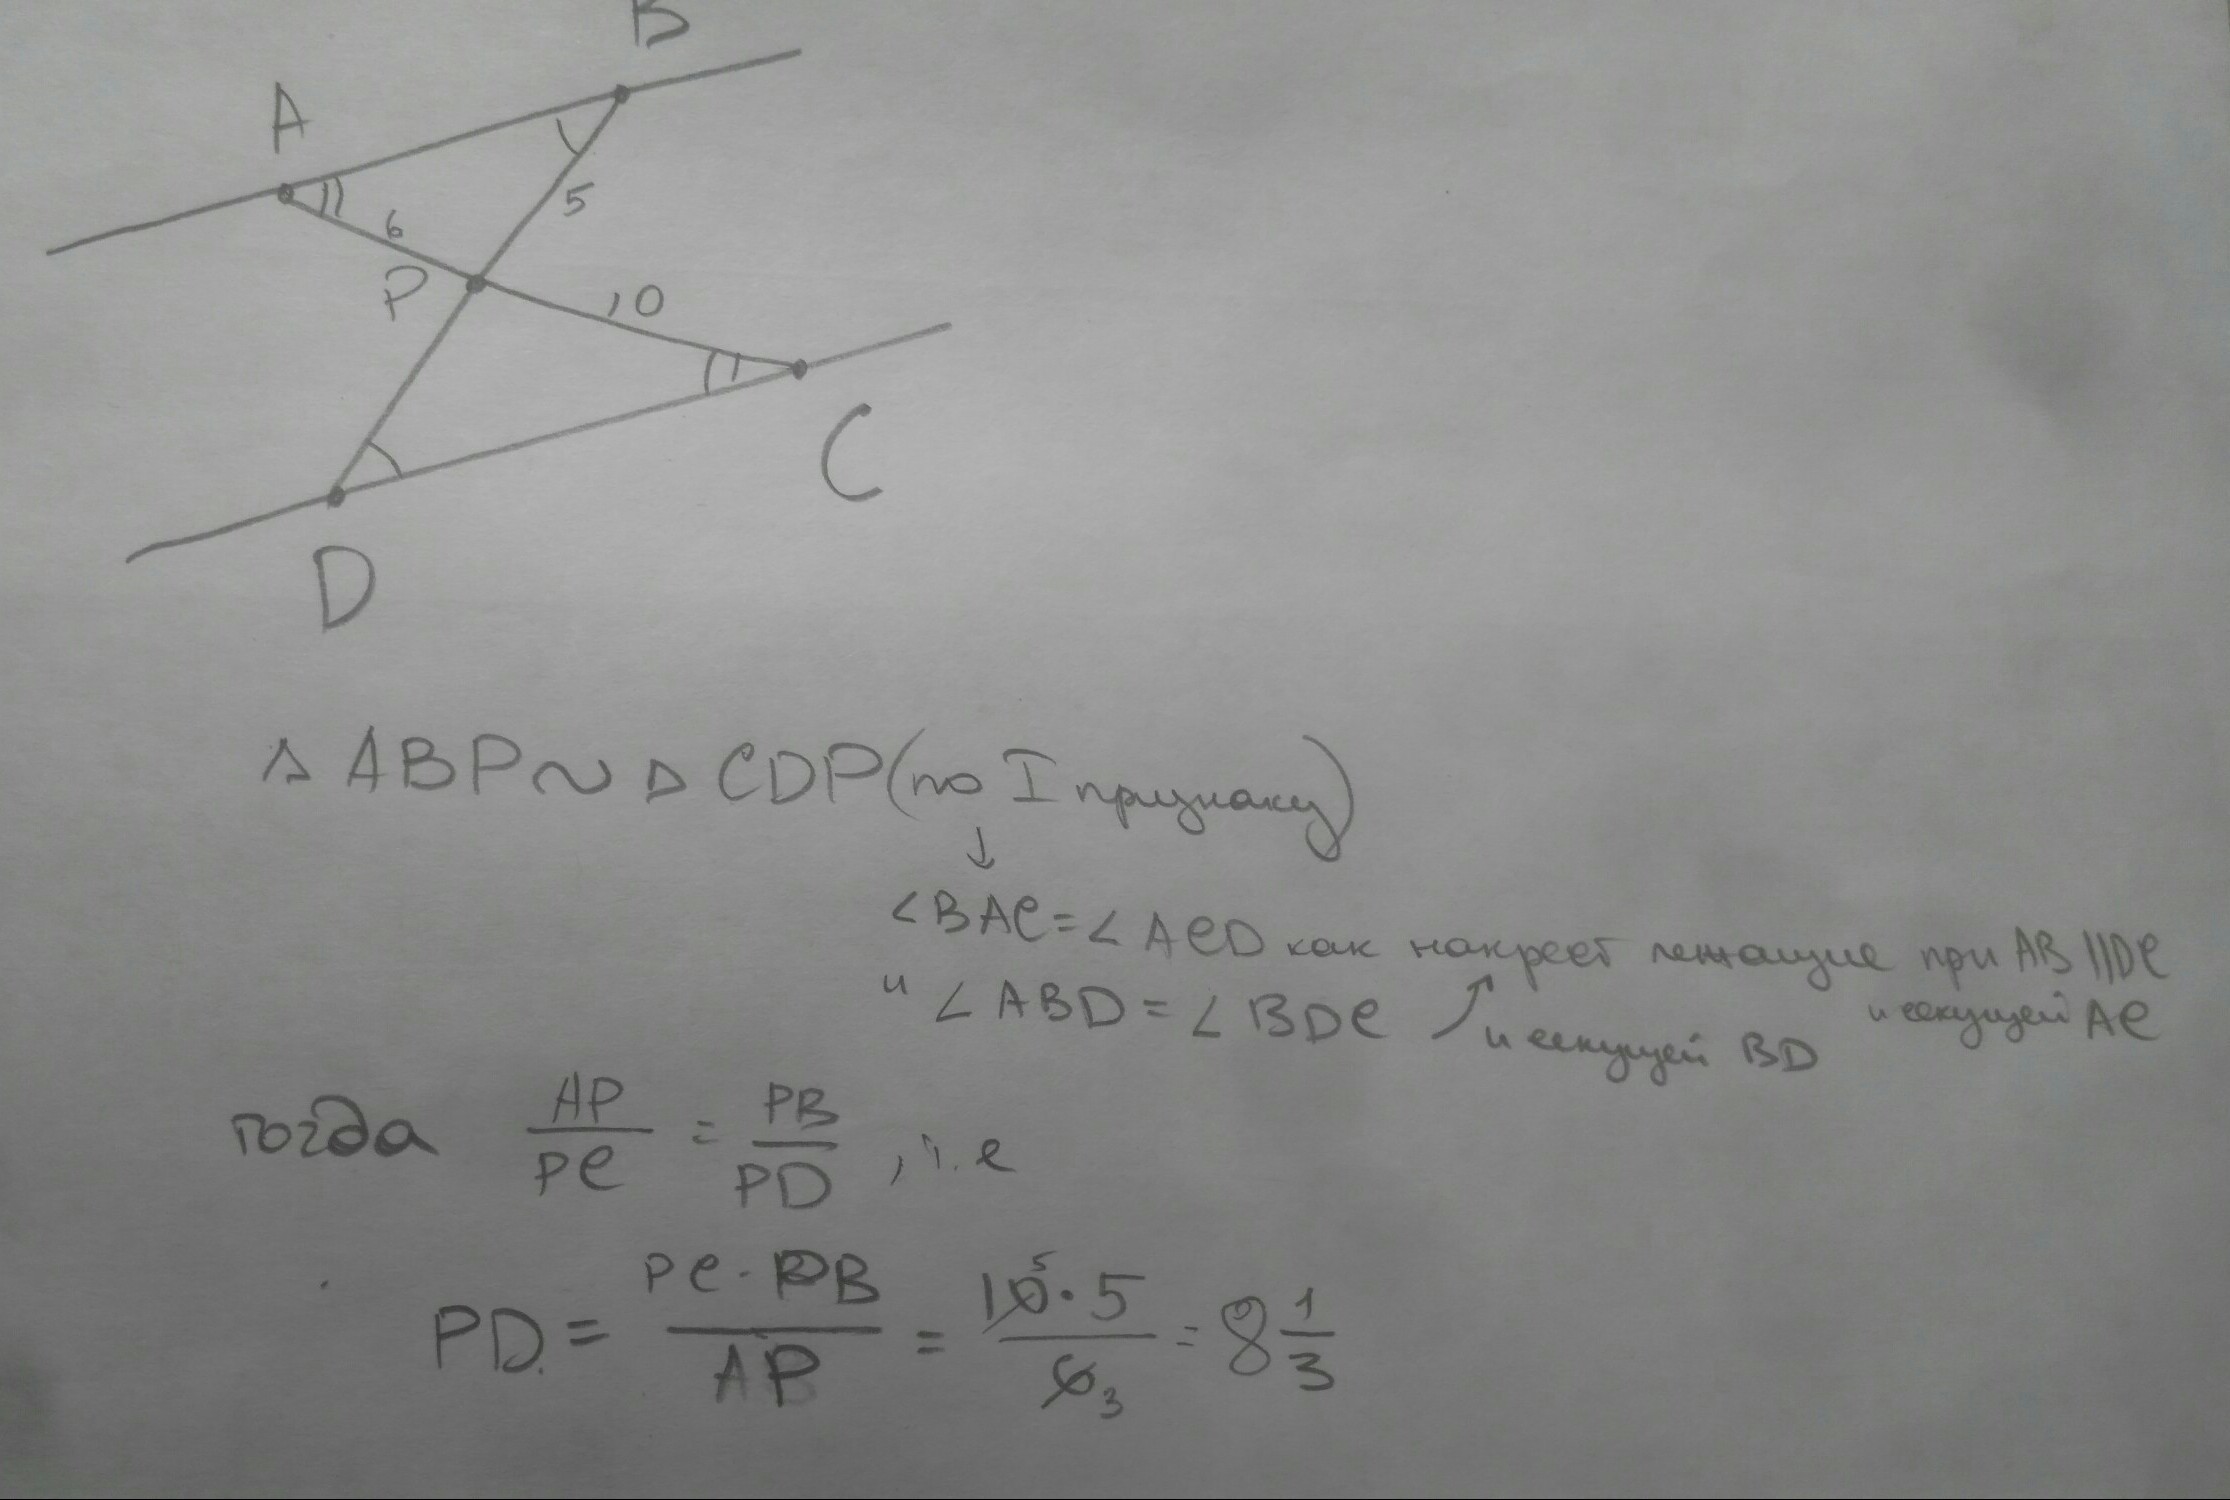 B
A
5
6
P
10
C
D
Δ ABP ~ Δ CDP (по I признаку)
↓
∠BAC = ∠ACD как накрест лежащие при AB || DC
и секущей AC
и ∠ABD = ∠BDC ↗ и секущей BD
тогда AP/PC = PB/PD, т.е
PD = PC · PB / AP = 10 5 · 5 / 6 3 = 8 1/3